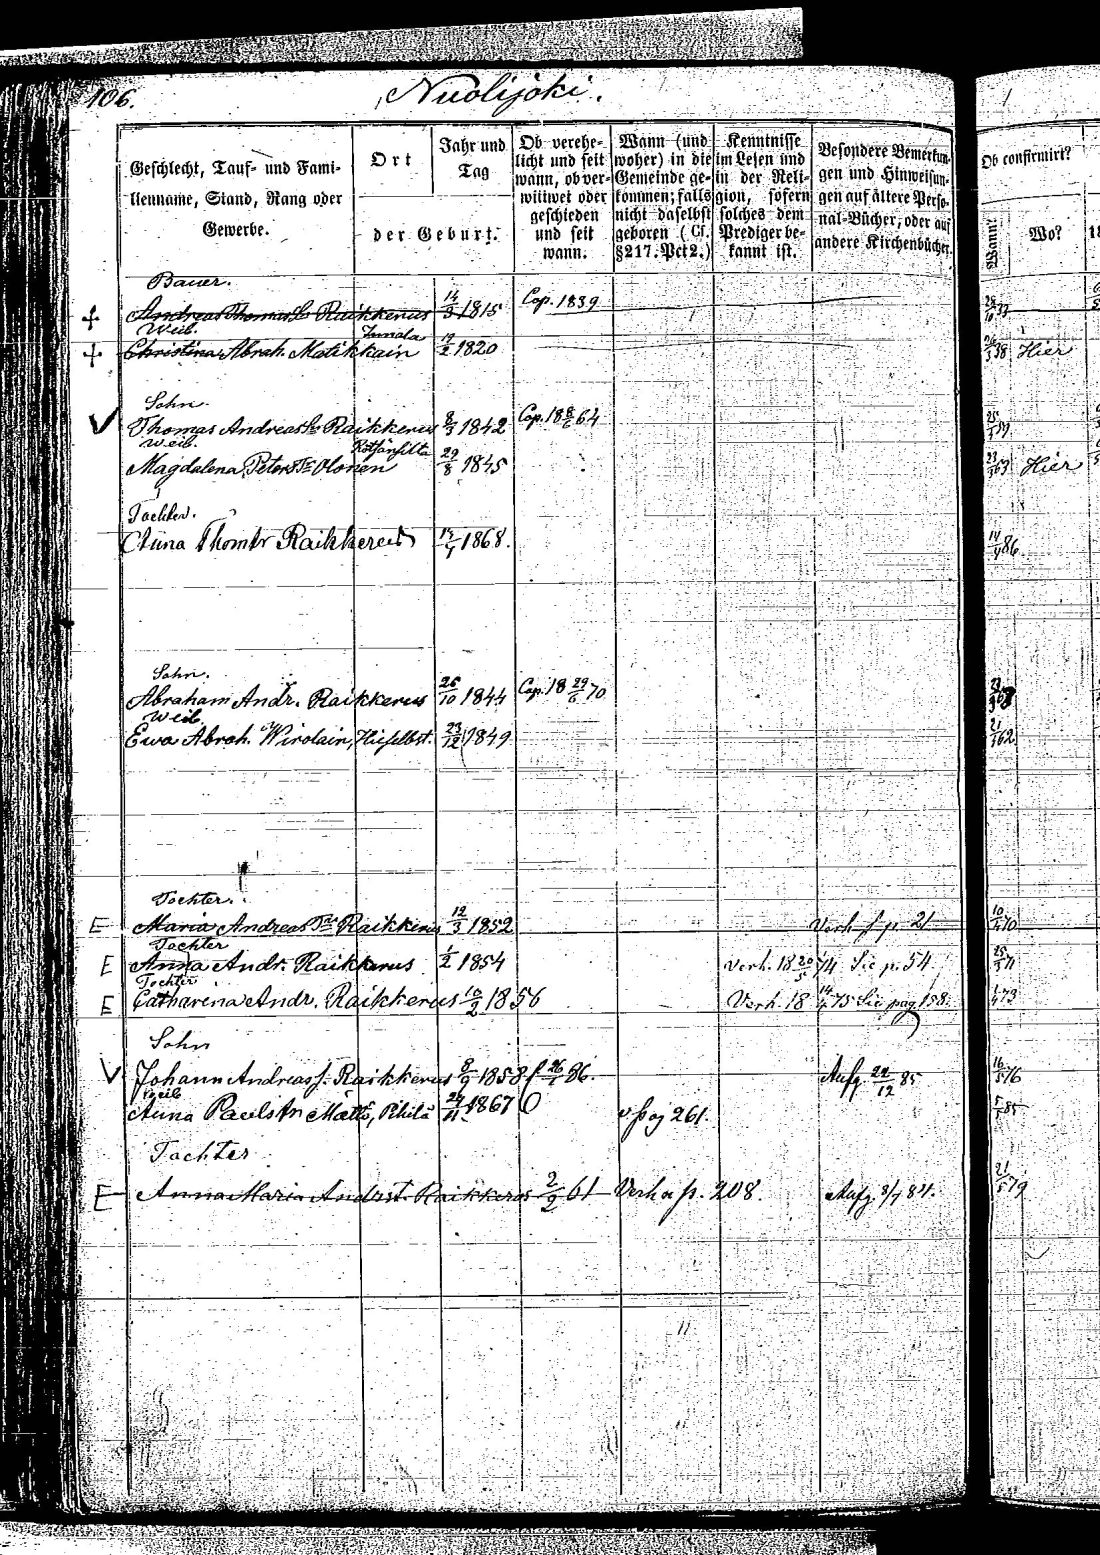 106. Nuolijoki.
Geschlecht, Tauf- und Fami-
lienname, Stand, Rang oder
Gewerbe.
Ort
Jahr und
Tag
der Geburt.
Ob verehe-
licht und seit
wann, ob ver-
wittwet oder
geschieden
und seit
wann.
Wann (und
woher) in die
Gemeinde ge-
kommen; falls
nicht daselbst
geboren (Cf.
§217. Pct 2.)
Kenntnisse
im Lesen und
in der Reli-
gion, sofern
solches dem
Prediger be-
kannt ist.
Besondere Bemerkun-
gen und Hinweisun-
gen auf ältere Perso-
nal-Bücher, oder auf
andere Kirchenbücher.
Ob confirmirt?
Wann?
Wo?
Bauer.
Andreas Thomas S. Raikkerus 14/3 1815 Cop. 1839
Weib.
Christina Abrah. Matikkain 1820 38 Hier
Sohn.
V Thomas Andreas S. Raikkerus 8/3 1842 Cop. 18 8/6 64
Weib.
Magdalena Peters Tr. Olonen 29/8 1845 63 Hier
Tochter.
Anna Thom tr Raikkerus 1868. 86
Sohn.
Abraham Andr. Raikkerus 26/10 1844 Cop. 18 29/6 70
Weib.
Ewa Abrah. Wirolain, Hieselbst. 23/12 1849 62
Tochter.
E Maria Andreas Tr. Raikkerus 12/3 1852 Verh p. 21 10/4 70
Tochter
E Anna Andr. Raikkerus 1/2 1854 Verh. 18 20/5 74 Sie p. 54. 71
Tochter
E Catharina Andr. Raikkerus 10/2 1856 Verh. 18 75 Sie pag 158. 73
Sohn
V Johann Andreas s. Raikkerus 8/9 1858 86. Aufg. 22/12 85 76
Weib
Anna Pauls tr Mattö, Pihilä 1867 v pag 261. 85
Tochter
E Anna Maria Andrs t. Raikkerus 2/2 61 Verh p. 208. Aufg. 84. 21/5 79